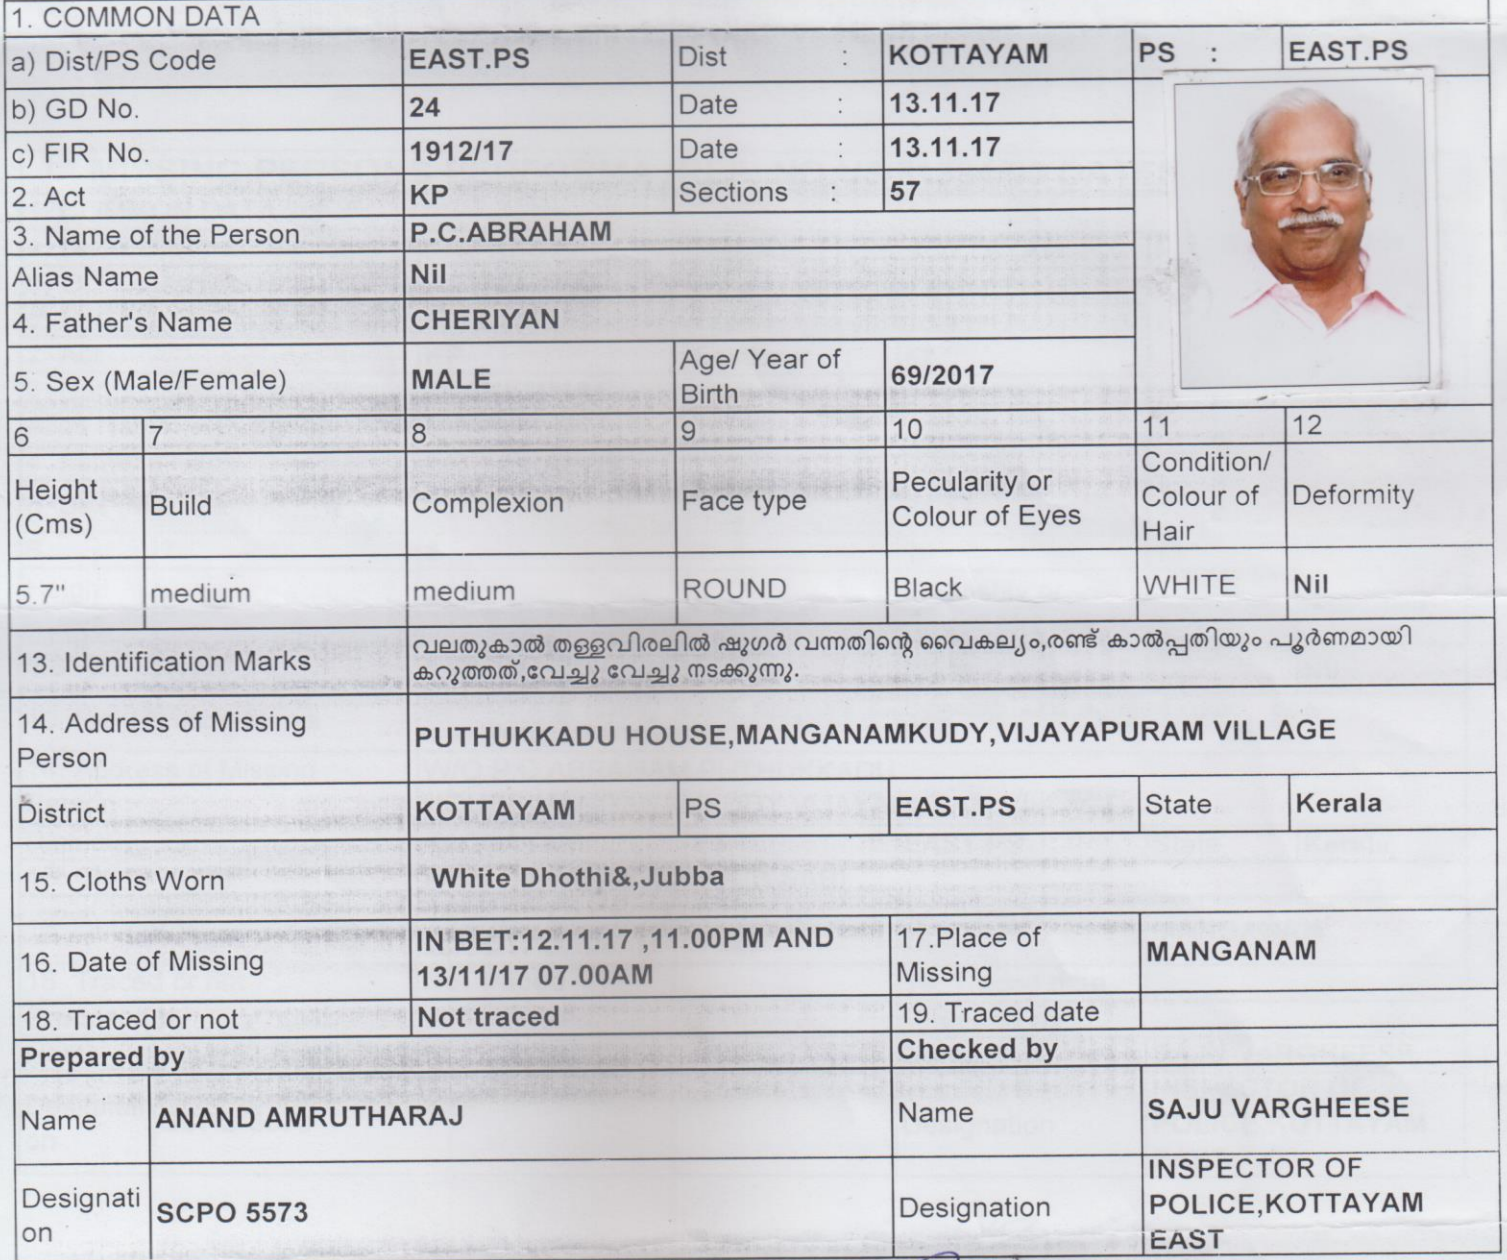 1. COMMON DATA
a) Dist/PS Code EAST.PS Dist : KOTTAYAM PS : EAST.PS
b) GD No. 24 Date : 13.11.17
c) FIR No. 1912/17 Date : 13.11.17
2. Act KP Sections : 57
3. Name of the Person P.C.ABRAHAM
Alias Name Nil
4. Father's Name CHERIYAN
5. Sex (Male/Female) MALE Age/ Year of Birth 69/2017
6 7 8 9 10 11 12
Height (Cms) Build Complexion Face type Pecularity or Colour of Eyes Condition/ Colour of Hair Deformity
5.7" medium medium ROUND Black WHITE Nil
13. Identification Marks വലതുകാൽ തള്ളവിരലിൽ ഷുഗർ വന്നതിന്റെ വൈകല്യം,രണ്ട് കാൽപ്പതിയും പൂർണമായി
കറുത്തത്,വേച്ചു വേച്ചു നടക്കുന്നു.
14. Address of Missing
Person PUTHUKKADU HOUSE,MANGANAMKUDY,VIJAYAPURAM VILLAGE
District KOTTAYAM PS EAST.PS State Kerala
15. Cloths Worn White Dhothi&,Jubba
16. Date of Missing IN BET:12.11.17 ,11.00PM AND
13/11/17 07.00AM 17.Place of Missing MANGANAM
18. Traced or not Not traced 19. Traced date
Prepared by Checked by
Name ANAND AMRUTHARAJ Name SAJU VARGHEESE
Designati
on SCPO 5573 Designation INSPECTOR OF
POLICE,KOTTAYAM
EAST